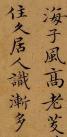 海子風高老芰
住久居人識漸多